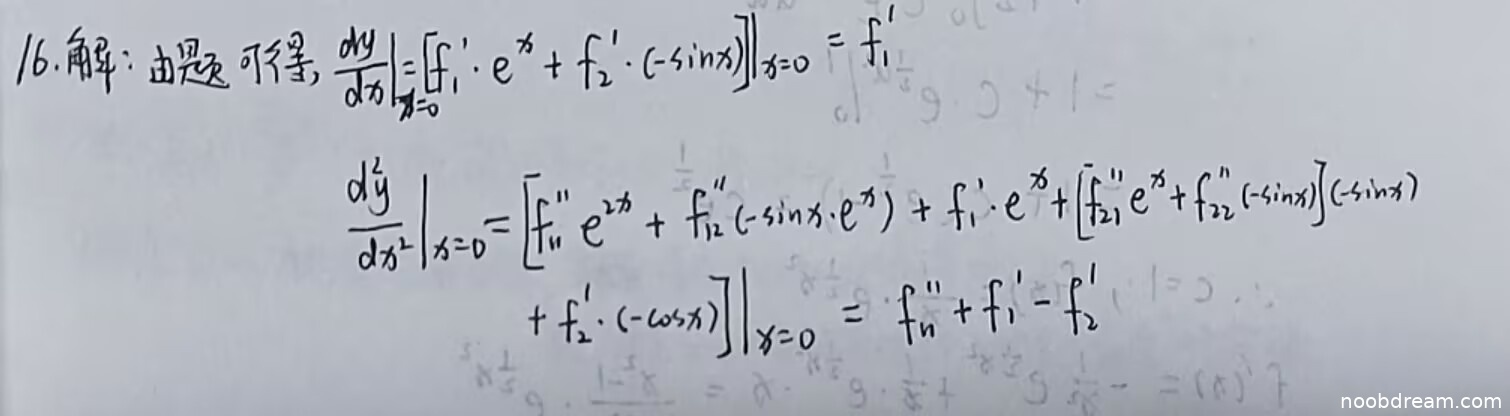 16.解:由题可得, dy/dx|x=0 = [f₁'·eˣ + f₂'·(-sinx)]|x=0 = f₁'
d²y/dx²|x=0 = [f₁₁''e²ˣ + f₁₂''(-sinx·eˣ) + f₁'·eˣ + [f₂₁''eˣ + f₂₂''(-sinx)](-sinx)
+ f₂'·(-cosx)]|x=0 = f₁₁'' + f₁' - f₂'
noobdream.com